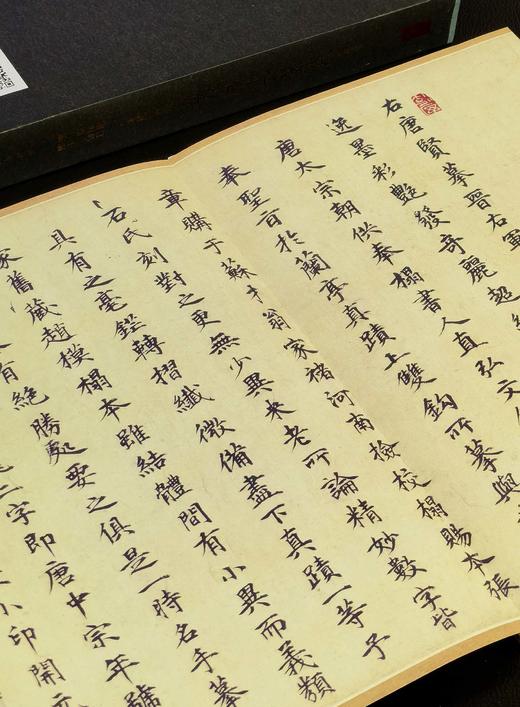 右唐賢摹晉右軍
逸墨彩艷發奇麗超
唐太宗朝供奉搨書人直弘文
奉聖旨於蘭亭真蹟上雙鉤所摹與
章購于蘇才翁家褚河南檢校搨賜本張
石氏刻對之更無少異米老所論精妙數字皆
具有之毫鋩轉摺纖微備盡下真蹟一等予
家舊藏趙模搨本雖結體間有小異而義類
有絕勝處要之俱是一時名手摹
二字即唐中宗年號
小印開